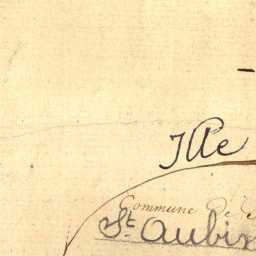 Ille
Commune de
St. Aubin